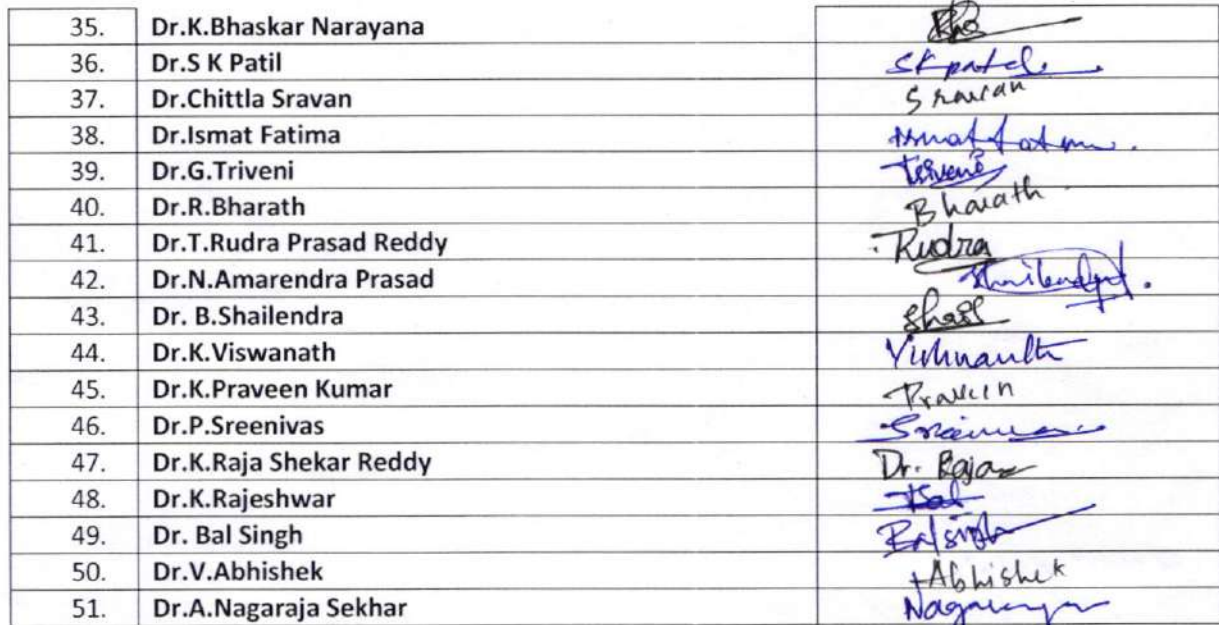 35. Dr.K.Bhaskar Narayana
36. Dr.S K Patil SK patil
37. Dr.Chittla Sravan Sravan
38. Dr.Ismat Fatima Ismat fatima.
39. Dr.G.Triveni Triveni
40. Dr.R.Bharath Bharath
41. Dr.T.Rudra Prasad Reddy Rudra
42. Dr.N.Amarendra Prasad
43. Dr. B.Shailendra Shail
44. Dr.K.Viswanath Vishnauth
45. Dr.K.Praveen Kumar Praveen
46. Dr.P.Sreenivas
47. Dr.K.Raja Shekar Reddy Dr. Raja
48. Dr.K.Rajeshwar
49. Dr. Bal Singh Balsingh
50. Dr.V.Abhishek Abhishek
51. Dr.A.Nagaraja Sekhar